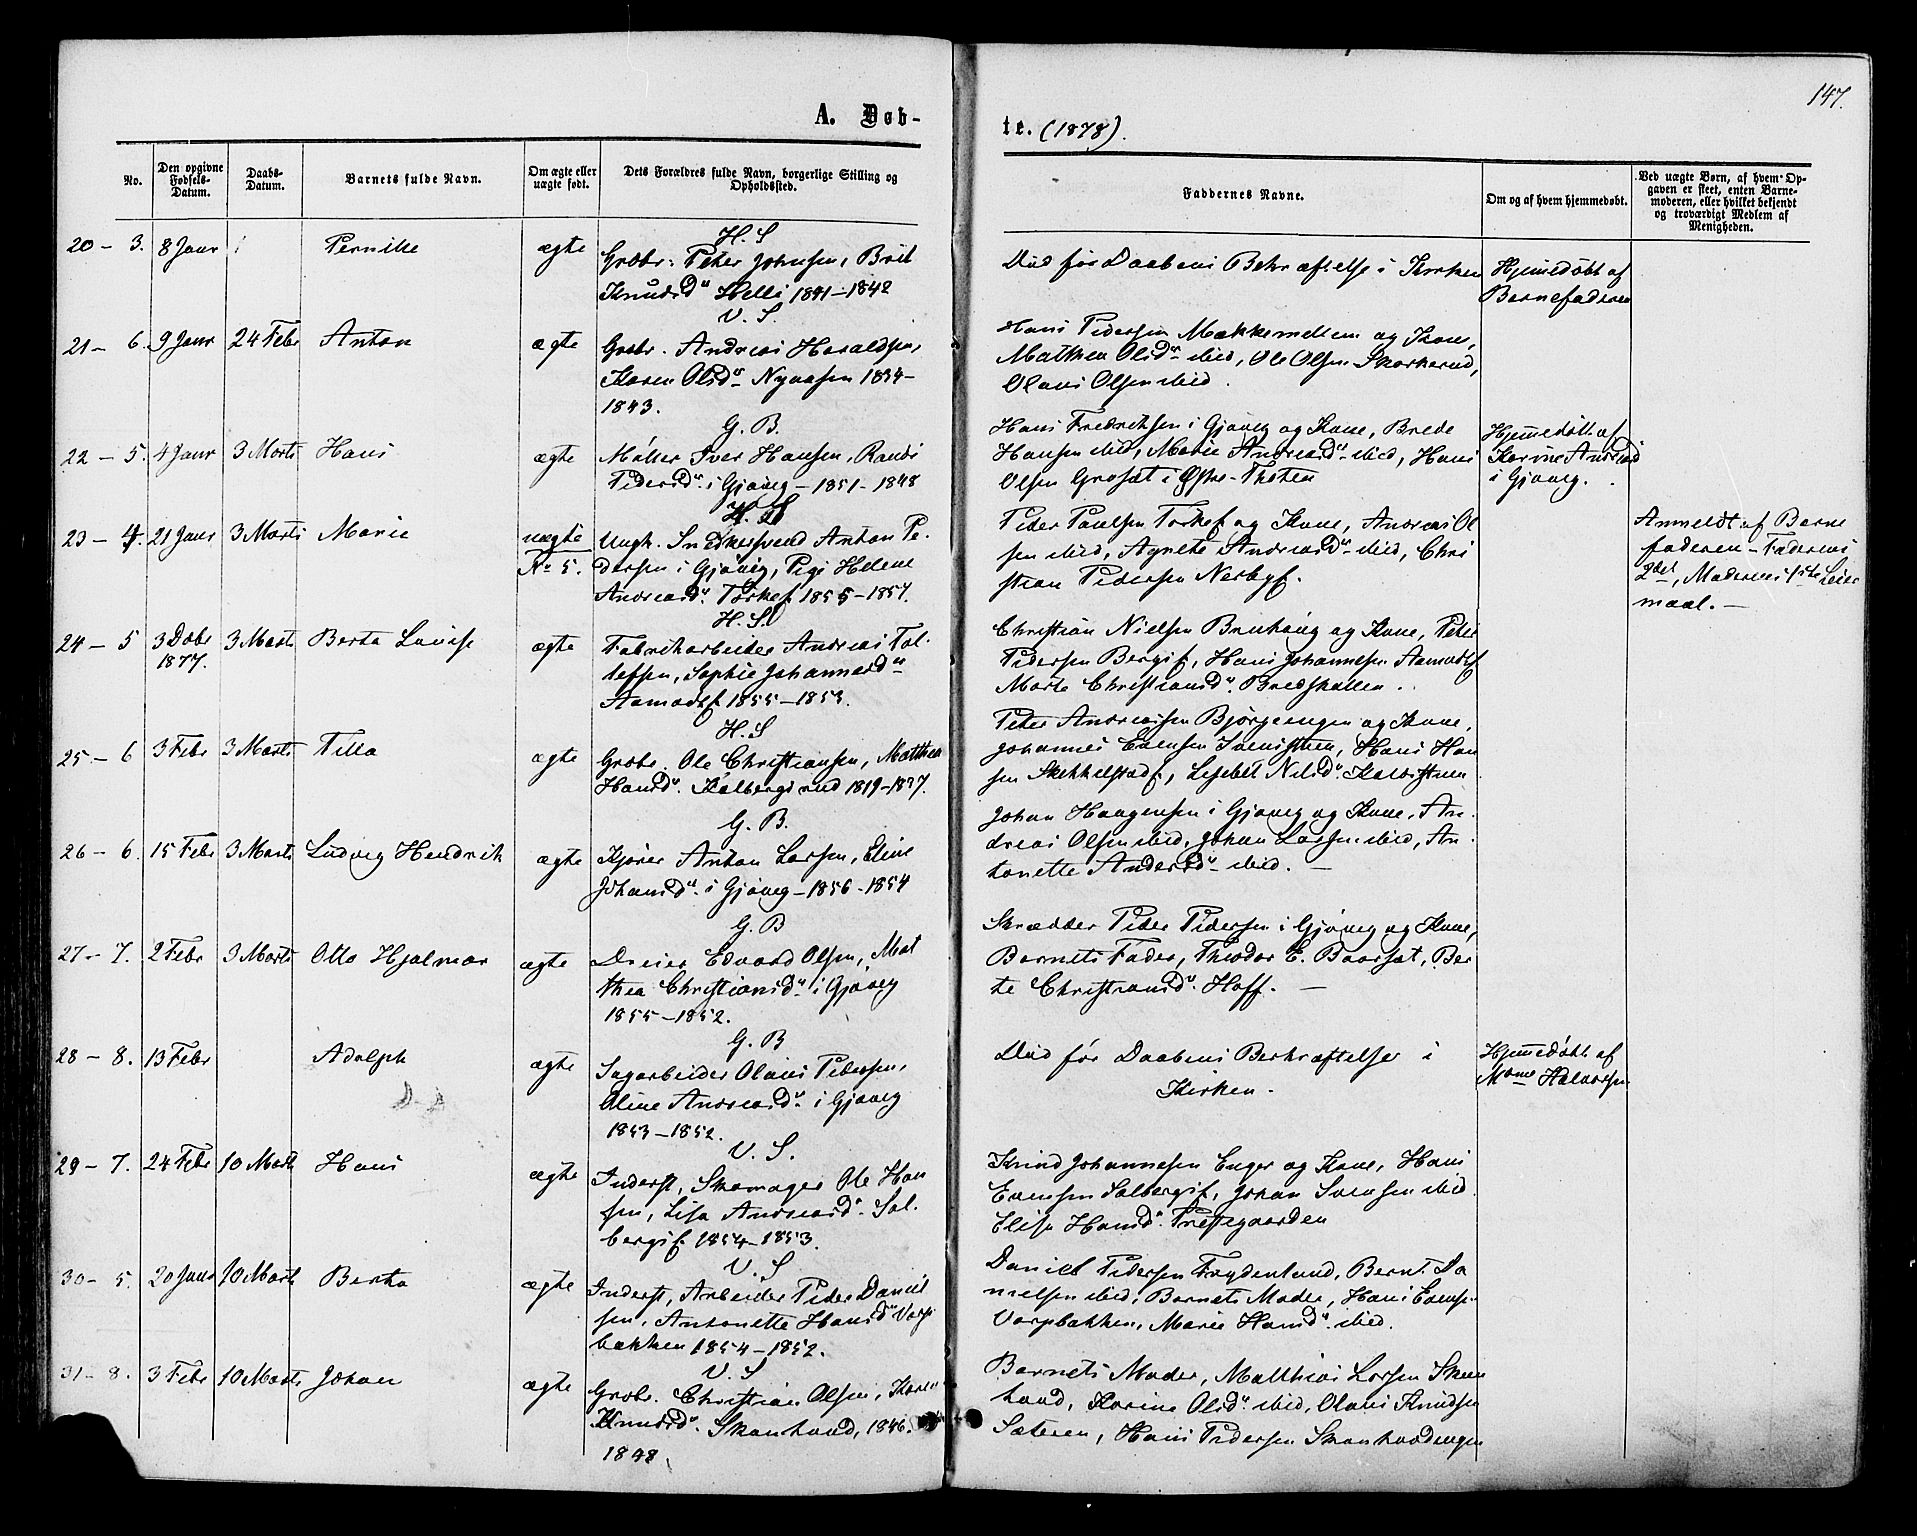 147.
A. Døb-
te. (1878).
No.
Den opgivne Fødsels-Datum.
Daabs-Datum.
Barnets fulde Navn.
Om ægte eller uægte født.
Dets Forældres fulde Navn, borgerlige Stilling og Opholdssted.
Faddernes Navne.
Om og af hvem hjemmedøbt.
Ved uægte Børn, af hvem Opgaven er skeet, enten Barnemoderen, eller hvilket bekjendt og troværdigt Medlem af Menigheden.
H. S
20 - 3. 8 Janr Pernille ægte Grobr. Peter Johnsen, Brit
Knudsd. Helli 1841-1842
Død før Daabens Bekræftelse i Kirken
Hjemedøbt af
Barnefaderen
V. S.
21 - 6. 9 Janr 24 Febr Anton ægte Grobr. Andreas Haraldsen,
Karen Olsd. Nyaasen 1834-
1843.
Hans Pedersen Mækkemellem og Kone,
Mathea Olsd. ibid, Ole Olsen Skorkerud,
Olaus Olsen ibid.
G. B.
22 - 5. 4 Janr 3 Marts Hans ægte Møller Iver Hansen, Randi
Pedersd. i Gjøvig - 1851-1848
Hans Fredriksen i Gjøvig og Kone, Brede
Hansen ibid, Marie Andreasd. ibid, Hans
Olsen Grosæt i Østre-Thoten
Hjemedøbt af
Karine Andreasd
i Gjøvig.
H. S
23 - 4. 21 Janr 3 Marts Marie uægte
No 5.
Ungk. Snedkersvend Anton Pe-
dersen i Gjøvig, Pige Helene
Andreasd. Torkef. 1855-1857.
Peder Paulsen Torkef og Kone, Andreas Ol
sen ibid, Agnete Andreasd. ibid, Chri
stian Pedersen Nerbyf.
Anmeldt af Barne
faderen - Faderens
2det, Moderens 1ste Leier
maal. -
H. S.
24 - 5 3 Debr
1877. 3 Marts Berta Lovise ægte Fabrikarbeider Andreas Tol-
lefsen, Sophie Johannesd.
Aamodtf. 1855-1853.
Christian Nielsen Bruhaug og Kone, Peter
Pedersen Bergsf, Hans Johannesen Aamodtf
Marte Christiansd. Bredskallen.
H. S
25 - 6 3 Febr 3 Marts Tilla ægte Grobr. Ole Christiansen, Mathea
Hansd. Kalbergsrud 1819-1837.
Peter Andreasen Bjørgeengen og Kone,
Johannes Evensen Svenstuen, Hans Han
sen Skikkelstadf, Lisebet Nilsd.
G. B.
26 - 6. 15 Febr 3 Marts Ludvig Hendrik ægte Kjører Anton Larsen, Eline
Johansd. i Gjøvig - 1856-1854
Johan Haagensen i Gjøvig og Kone, An
dreas Olsen ibid, Johan Larsen ibid, An
tonette Andersd. ibid. -
G. B
27 - 7. 2 Febr 3 Marts Otto Hjalmar ægte Dreier Edvard Olsen, Mat
thea Christiansd. i Gjøvig
1855-1852.
Skrædder Peder Pedersen i Gjøvig og Kone,
Barnets Fader, Theodor E. Baarsæt, Ber
te Christiansd. Hoff. -
G. B
28 - 8. 13 Febr Adolph ægte Sagarbeider Olaus Pedersen,
Oline Andreasd. i Gjøvig
1853-1852.
Død før Daabens Berkræftelse i
Kirken.
Hjemedøbt af
Mdme Halvorsen
V. S.
29 - 7. 24 Febr 10 Marts Hans ægte Inderst, Skomager Ole Han
sen, Lisa Andreasd. Sol-
bergsf. 1854-1853.
Knud Johannesen Enger og Kone, Hans
Evensen Solbergsf, Johan Svensen ibid
Elise Hansd. Prestegaarden
V. S
30 - 5. 20 Janr 10 Marts Berta ægte Inderst, Arbeider Peder Daniel
sen, Antonette Hansd. Vorp
bakken 1854-1852.
Daniel Pedersen Frydenlund, Bernt Da
nielsen ibid, Barnets Moder, Hans Evensen
Vorpbakken, Marie Hansd. ibid.
V. S
31 - 8. 3 Febr 10 Marts Johan ægte Grobr. Christian Olsen, Karen
Knudsd. Skonhovd, 1846-
1848.
Barnets Moder, Matthias Larsen Skon
hovd, Karine Olsd. ibid, Olaus Knudsen
Sæteren, Hans Pedersen Skonhovdengen